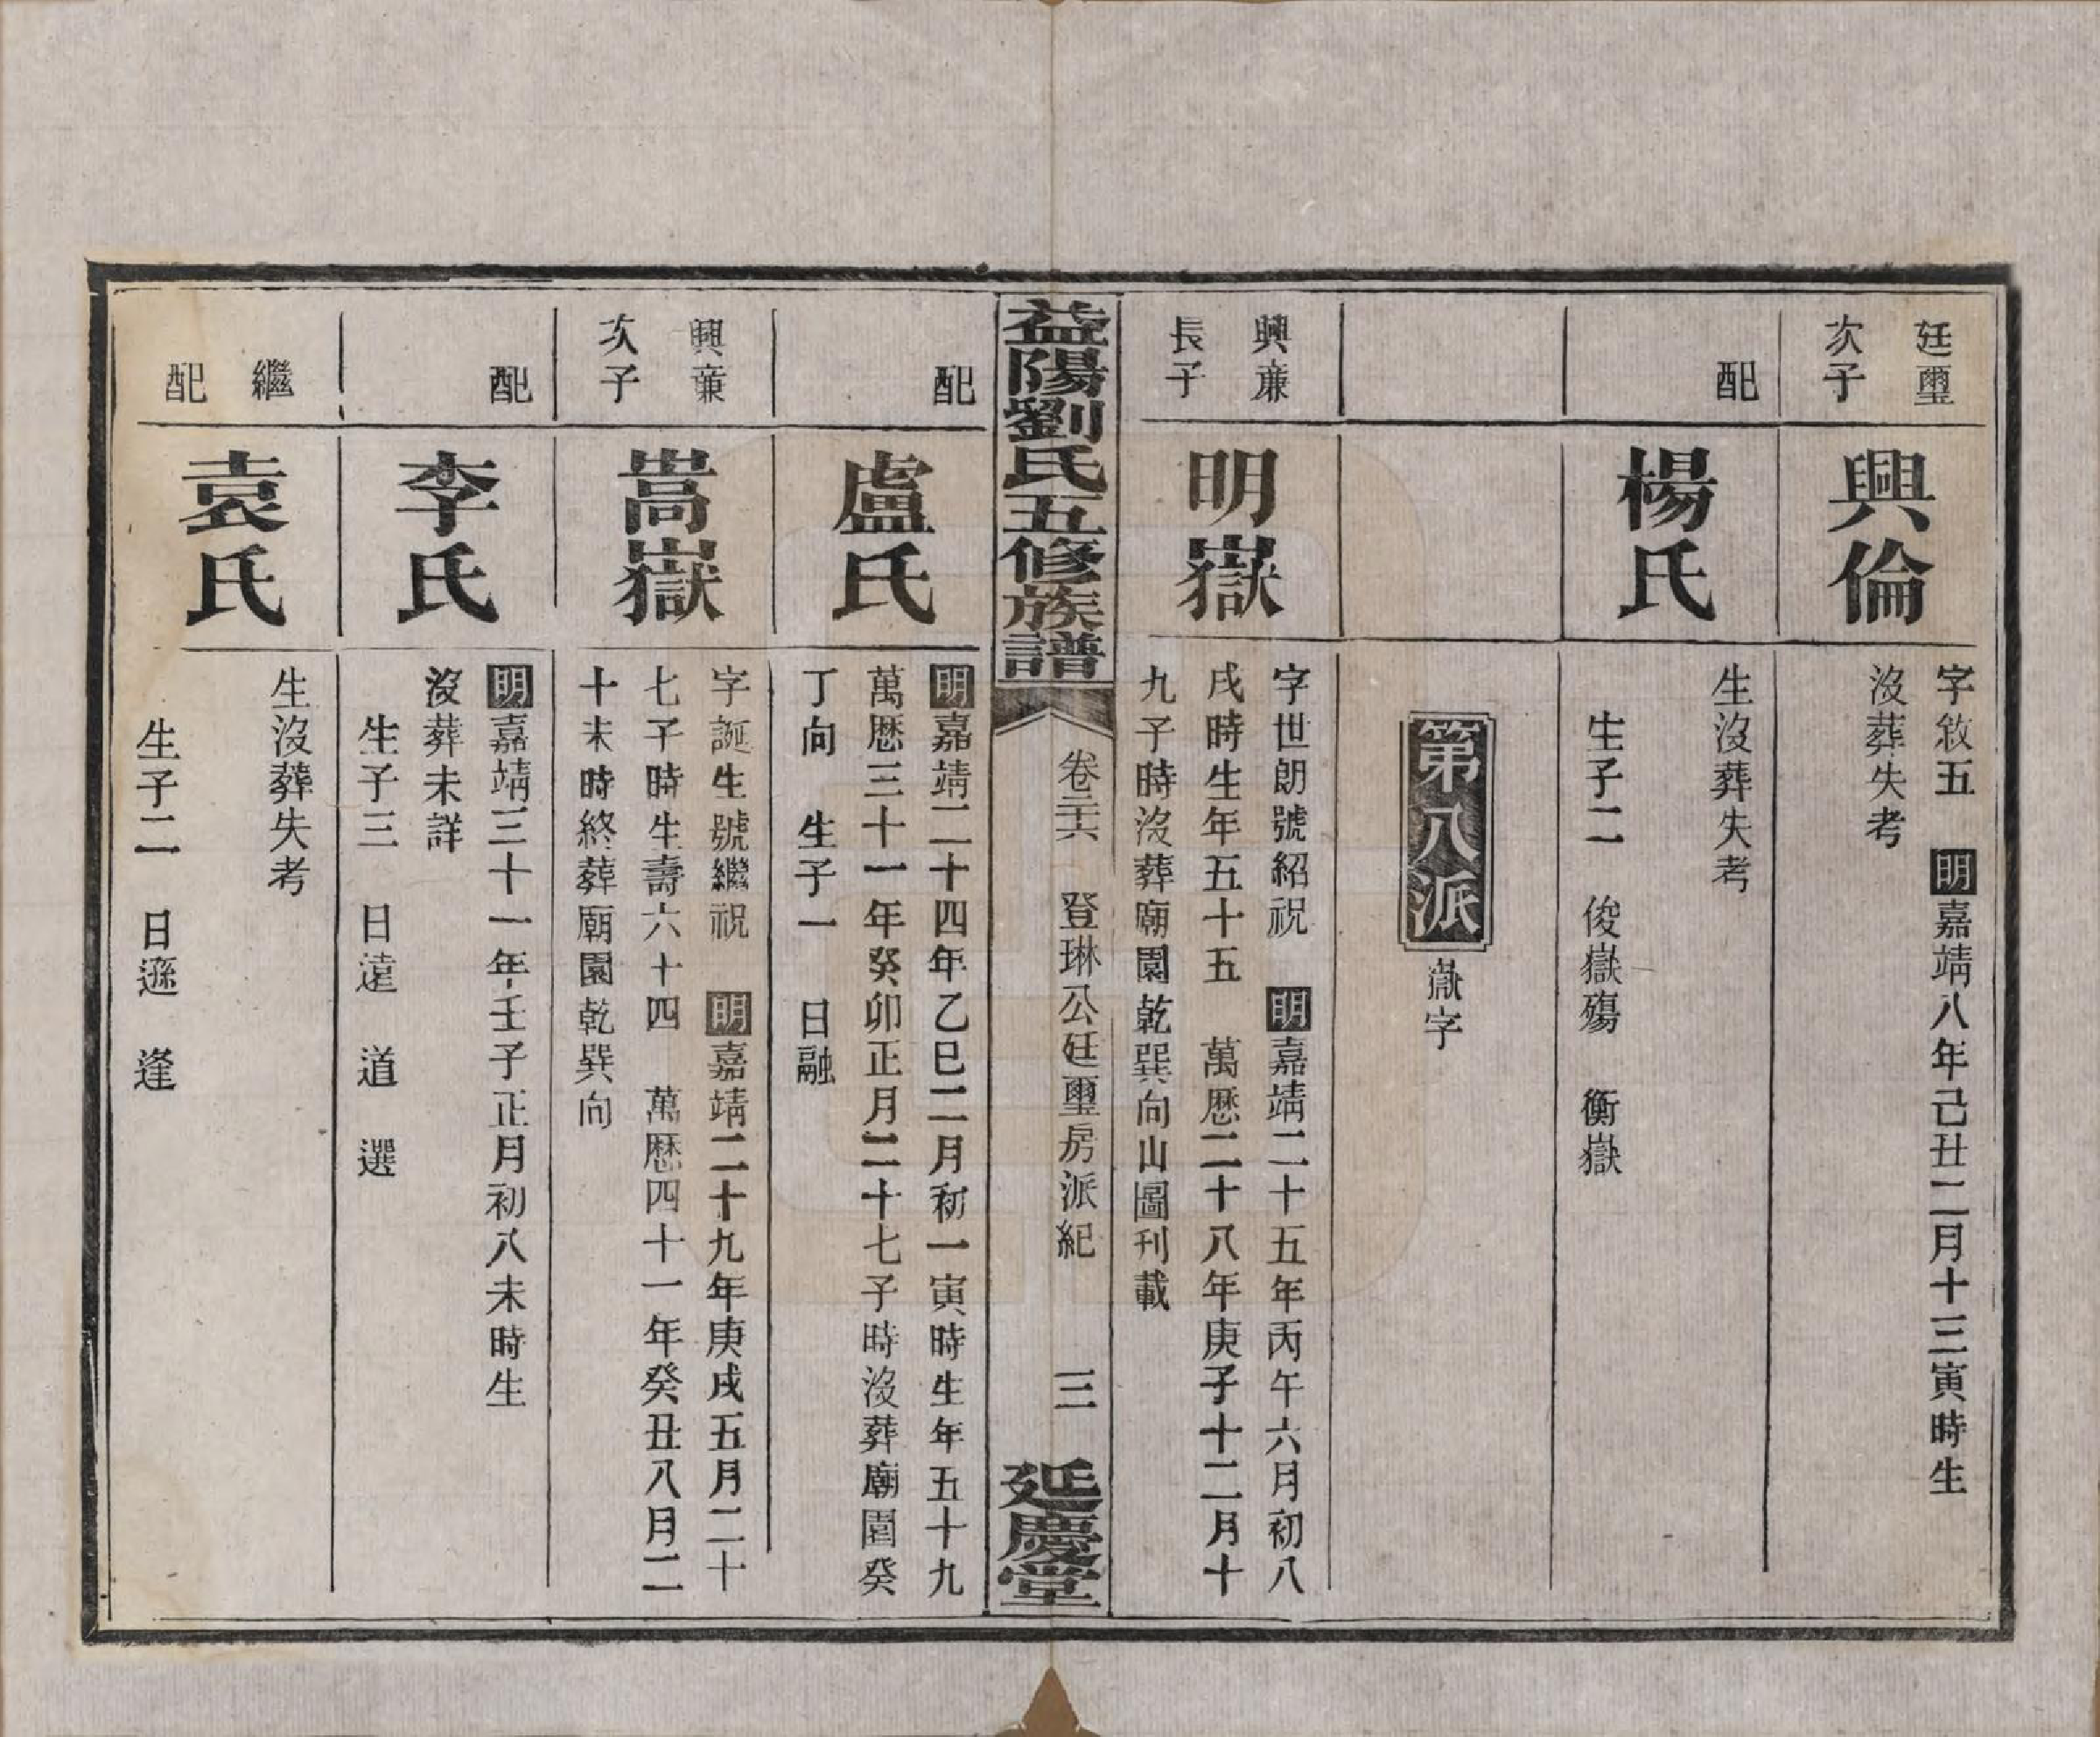 廷璽
次子
興倫
字敘五　明嘉靖八年己丑二月十三寅時生
沒葬失考
配
楊氏
生沒葬失考
生子二　俊嶽殤　衡嶽
第八派
嶽字
興廉
長子
明嶽
字世朗號紹祝　明嘉靖二十五年丙午六月初八
戌時生年五十五　萬厯二十八年庚子十二月十
九子時沒葬廟園乾巽向山圖刊載
益陽劉氏五修族譜
卷三六　登琳公廷璽房派紀　三
延慶堂
配
盧氏
明嘉靖二十四年乙巳二月初一寅時生年五十九
萬厯三十一年癸卯正月二十七子時沒葬廟園癸
丁向　生子一　日融
興廉
次子
嵩嶽
字誕生號繼祝　明嘉靖二十九年庚戌五月二十
七子時生壽六十四　萬厯四十一年癸丑八月二
十未時終葬廟園乾巽向
配
李氏
明嘉靖三十一年壬子正月初八未時生
沒葬未詳
生子三　日遠　道　選
繼
配
袁氏
生沒葬失考
生子二　日遜　逢